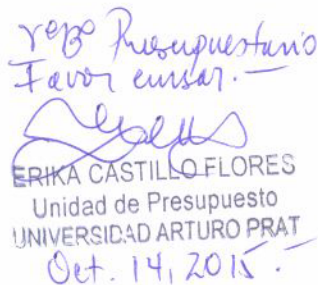 VºBº Presupuestario
Favor cursar.-
ERIKA CASTILLO FLORES
Unidad de Presupuesto
UNIVERSIDAD ARTURO PRAT
Oct. 14, 2015.-